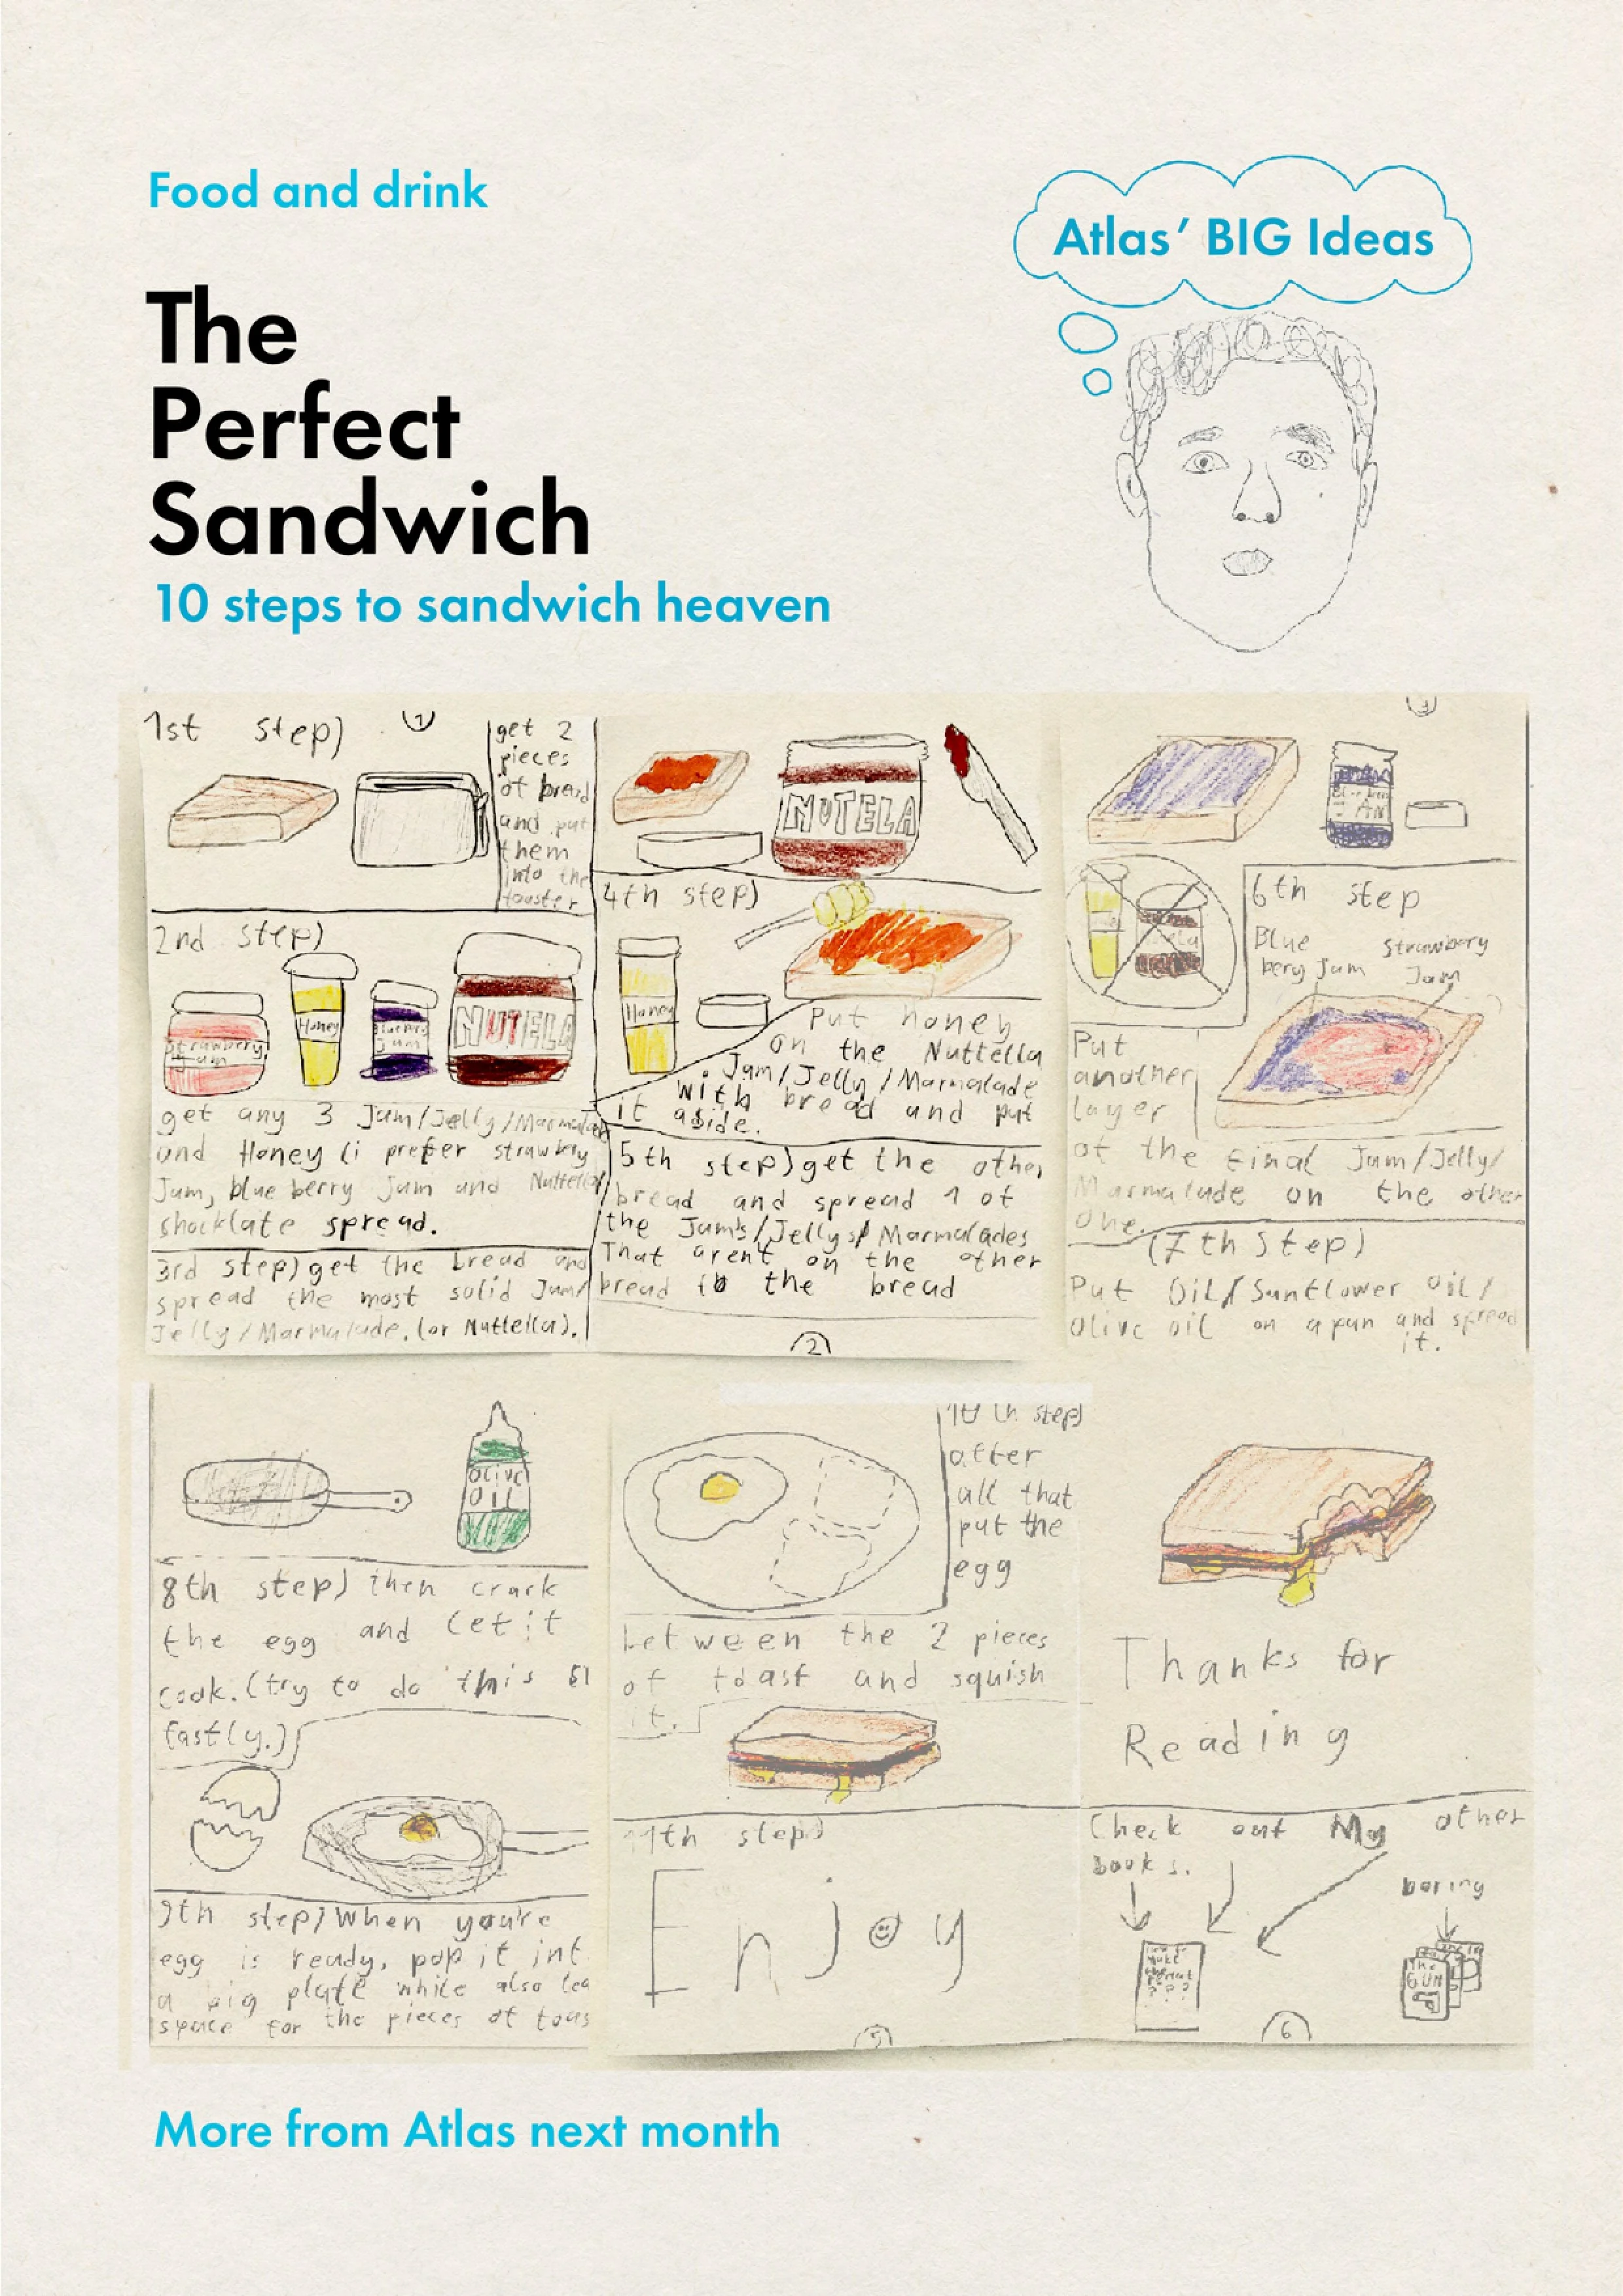 Food and drink
Atlas’ BIG Ideas
The
Perfect
Sandwich
10 steps to sandwich heaven
1st step)
1
get 2
pieces
of bread
and put
them
into the
touster
2nd step)
Strawbery
Jam
Honey
Blueberry
Jam
NUTELA
get any 3 Jam/Jelly/Marmalade
and Honey (i prefer strawbery
Jam, blue berry Jam and Nuttella
shocklate spread.
3rd step) get the bread and
spread the most solid Jam/
Jelly/Marmalade, (or Nuttella).
NUTELA
4th step)
Honey
Put honey
on the Nuttella
Jam/Jelly/Marmalade
with bread and put
it aside.
5th step) get the other
bread and spread 1 of
the Jams/Jellys/Marmalades
That aren't on the other
bread to the bread
2
3
6th step
Blue
bery Jam
Strawbery
Jam
Put
another
layer
of the final Jam/Jelly/
Marmalade on the other
one.
(7th Step)
Put Oil/Sunflower oil/
olive oil on a pan and spread
it.
olive
oil
8th step) then crack
the egg and let it
cook. (try to do this
fastly.)
9th step) When you're
egg is ready, pop it int
a big plate while also lea
space for the pieces of toas
10th step)
after
all that
put the
egg
between the 2 pieces
of toast and squish
it.
11th step)
Enjoy
5
Thanks for
Reading
Check out My other
books.
boring
THE
GUN
6
More from Atlas next month